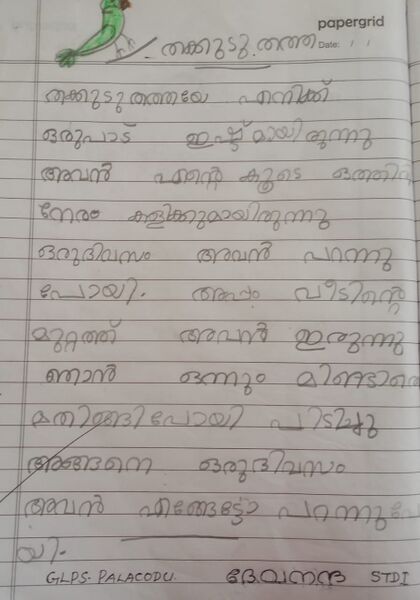 papergrid
തക്കുടു തത്ത
Date: / /
തക്കുടു തത്തയേ എനിക്ക്
ഒരുപാട് ഇഷ്ട്മായിരുന്നു
അവൻ എന്റെ കൂടെ
നേരം കളിക്കുമായിരുന്നു
ഒരുദിവസം അവൻ പറന്നു
പോയി. അപ്പം വീടിന്റെ
മുറ്റത്ത് അവൻ ഇരുന്നു
ഞാൻ ഒന്നും മിണ്ടാതെ
പിടിച്ചു
അങ്ങനെ ഒരുദിവസം
അവൻ എങ്ങേട്ടോ പറന്നുപോ
യി.
GLPS. PALACODU. ദേവനന്ദ STD I